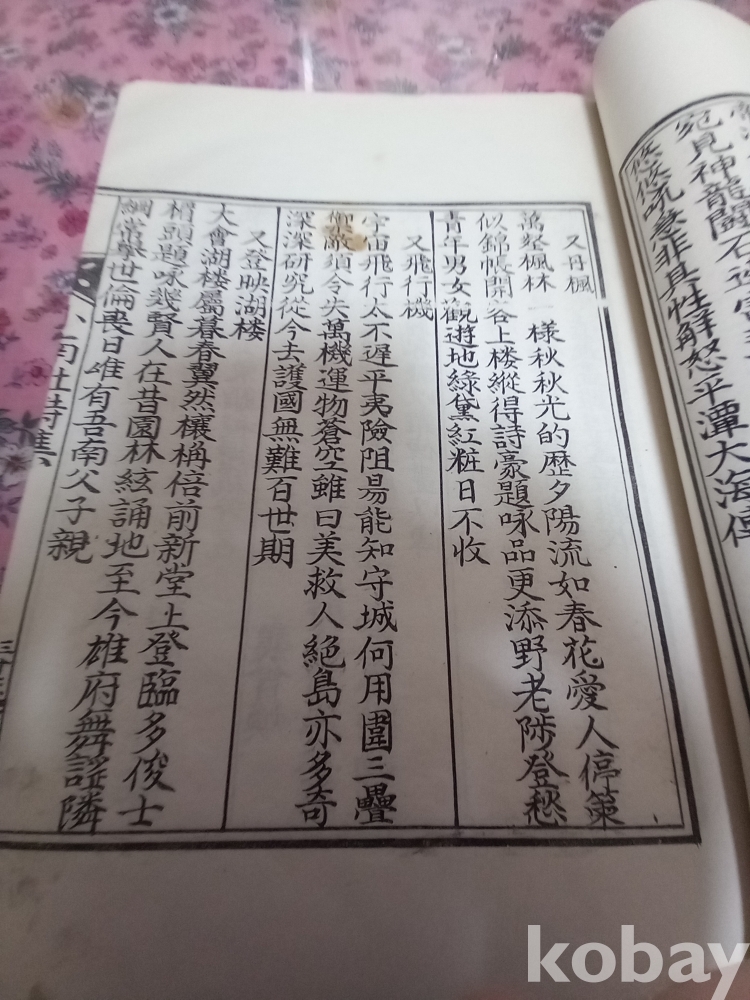 宛見神龍鬪石
悠悠 非其性解怒平潭大海
又丹楓
萬 楓林一樣秋秋光的歷夕陽流如春花愛人停策
似錦帳開谷上楼縱得詩豪題咏品更添野老陟登愁
青年男女觀遊地綠黛紅粧日不收
又飛行機
宇宙飛行太不遲平夷險阻易能知守城何用圍三疊
禦敵須令失萬機運物蒼空雖曰美救人絶島亦多奇
深深研究從今去護國無難百世期
又登映湖楼
大會湖楼屬暮春翼然 稱倍前新堂上登臨多俊士
楣頭題咏幾賢人在昔園林絃誦地至今雄府舞謡隣
綱常擧世倫喪日惟有吾南父子親
kobay